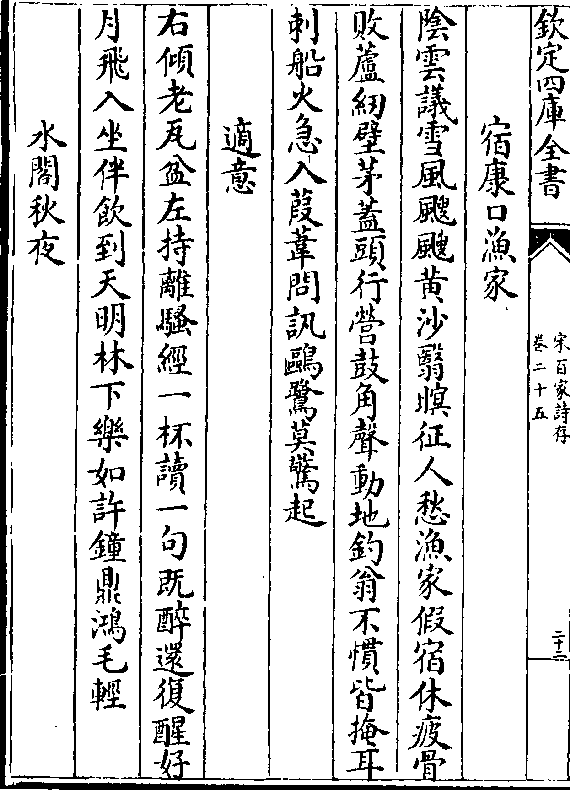 欽定四庫全書
宋百家詩存
卷二十五
二十二
宿康口漁家
陰雲議雪風颼颼黄沙翳暝征人愁漁家假宿休疲骨
敗蘆紉壁茅蓋頭行營鼓角聲動地釣翁不慣皆掩耳
刺船火急入葭葦問訊鷗鷺莫驚起
適意
右傾老瓦盆左持離騷經一杯讀一句既醉還復醒好
月飛入坐伴飲到天明林下樂如許鐘鼎鴻毛輕
水閣秋夜